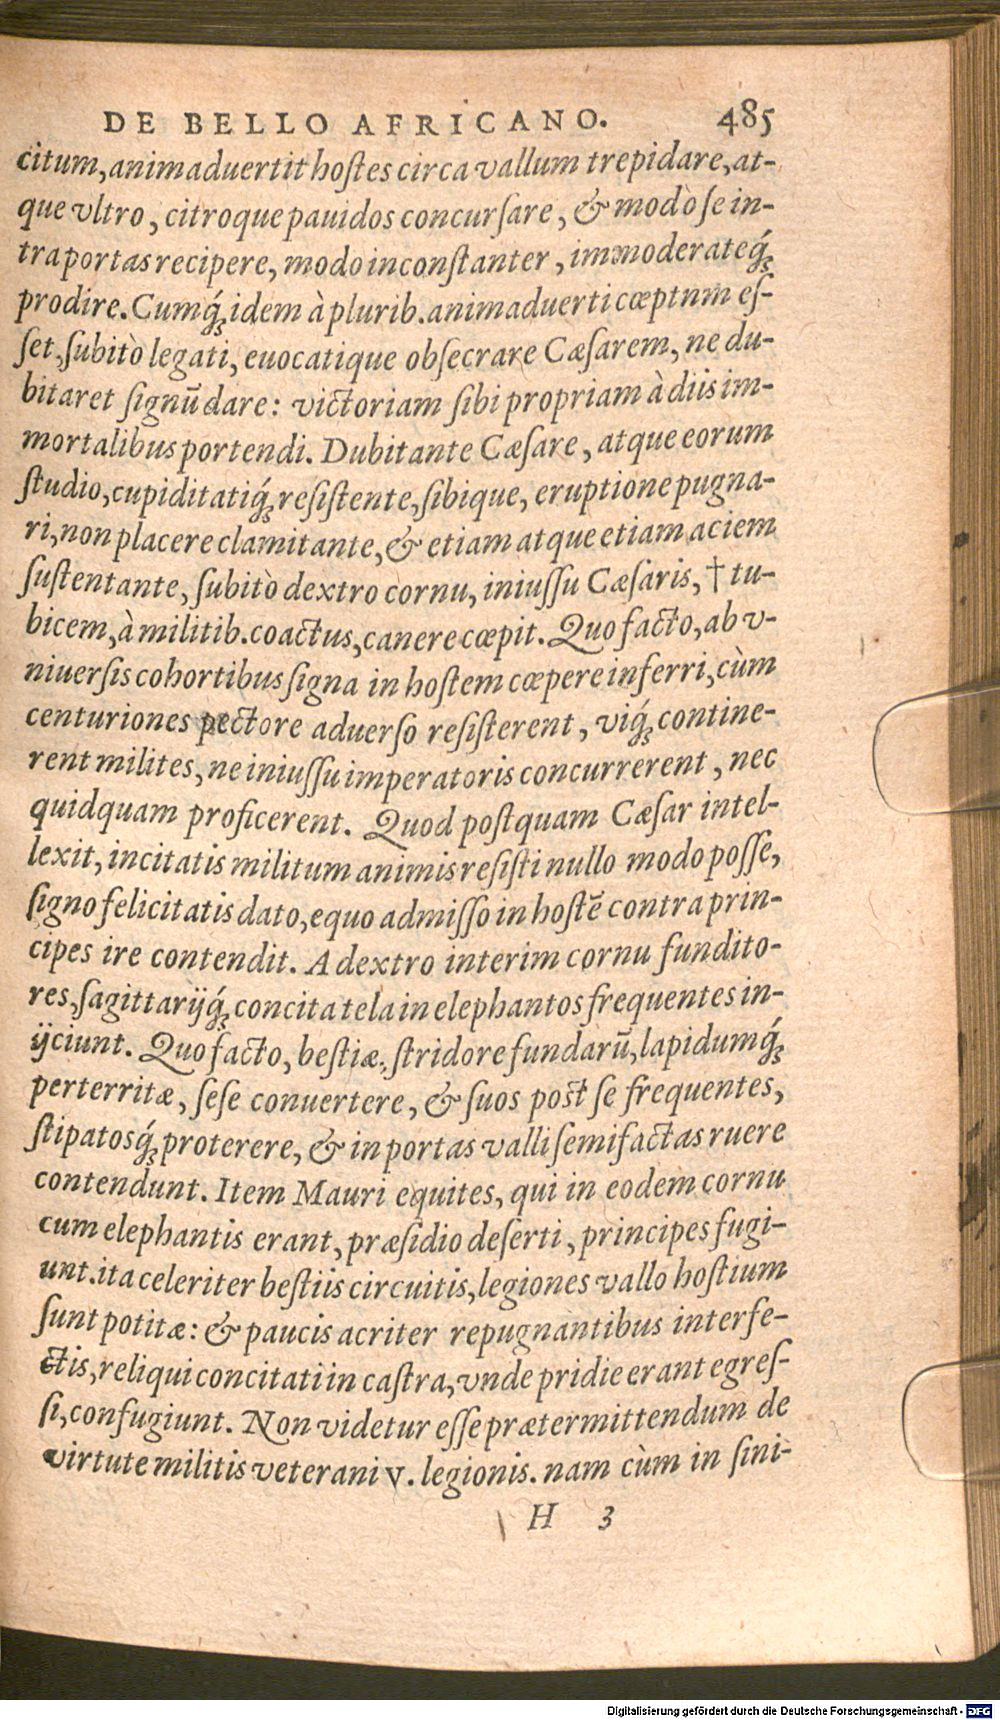 DE BELLO AFRICANO. 485
citum, animaduertit hostes circa vallum trepidare, at-
que vltro, citroque pauidos concursare, & modò se in-
tra portas recipere, modo inconstanter, immoderateq́;
prodire. Cumq́; idem à plurib. animaduerti cœptnm es-
set, subitò legati, euocatique obsecrare Cæsarem, ne du-
bitaret signũ dare: victoriam sibi propriam à diis im-
mortalibus portendi. Dubitante Cæsare, atque eorum
studio, cupiditatiq́; resistente, sibique, eruptione pugna-
ri, non placere clamitante, & etiam atque etiam aciem
sustentante, subitò dextro cornu, iniussu Cæsaris, † tu-
bicem, à militib. coactus, canere cœpit. Quo facto, ab v-
niuersis cohortibus signa in hostem cœpere inferri, cùm
centuriones pectore aduerso resisterent, viq́; contine-
rent milites, ne iniussu imperatoris concurrerent, nec
quidquam proficerent. Quod postquam Cæsar intel-
lexit, incitatis militum animis resisti nullo modo posse,
signo felicitatis dato, equo admisso in hostẽ contra prin-
cipes ire contendit. A dextro interim cornu fundito-
res, sagittarijq́; concita tela in elephantos frequentes in-
ijciunt. Quo facto, bestiæ, stridore fundarũ, lapidumq́;
perterritæ, sese conuertere, & suos post se frequentes,
stipatosq́; proterere, & in portas valli semifactas ruere
contendunt. Item Mauri equites, qui in eodem cornu
cum elephantis erant, præsidio deserti, principes fugi-
unt. ita celeriter bestiis circuitis, legiones vallo hostium
sunt potitæ: & paucis acriter repugnantibus interfe-
ctis, reliqui concitati in castra, vnde pridie erant egres-
si, confugiunt. Non videtur esse prætermittendum de
virtute militis veterani v. legionis. nam cùm in sini-
H 3
Digitalisierung gefördert durch die Deutsche Forschungsgemeinschaft - DFG